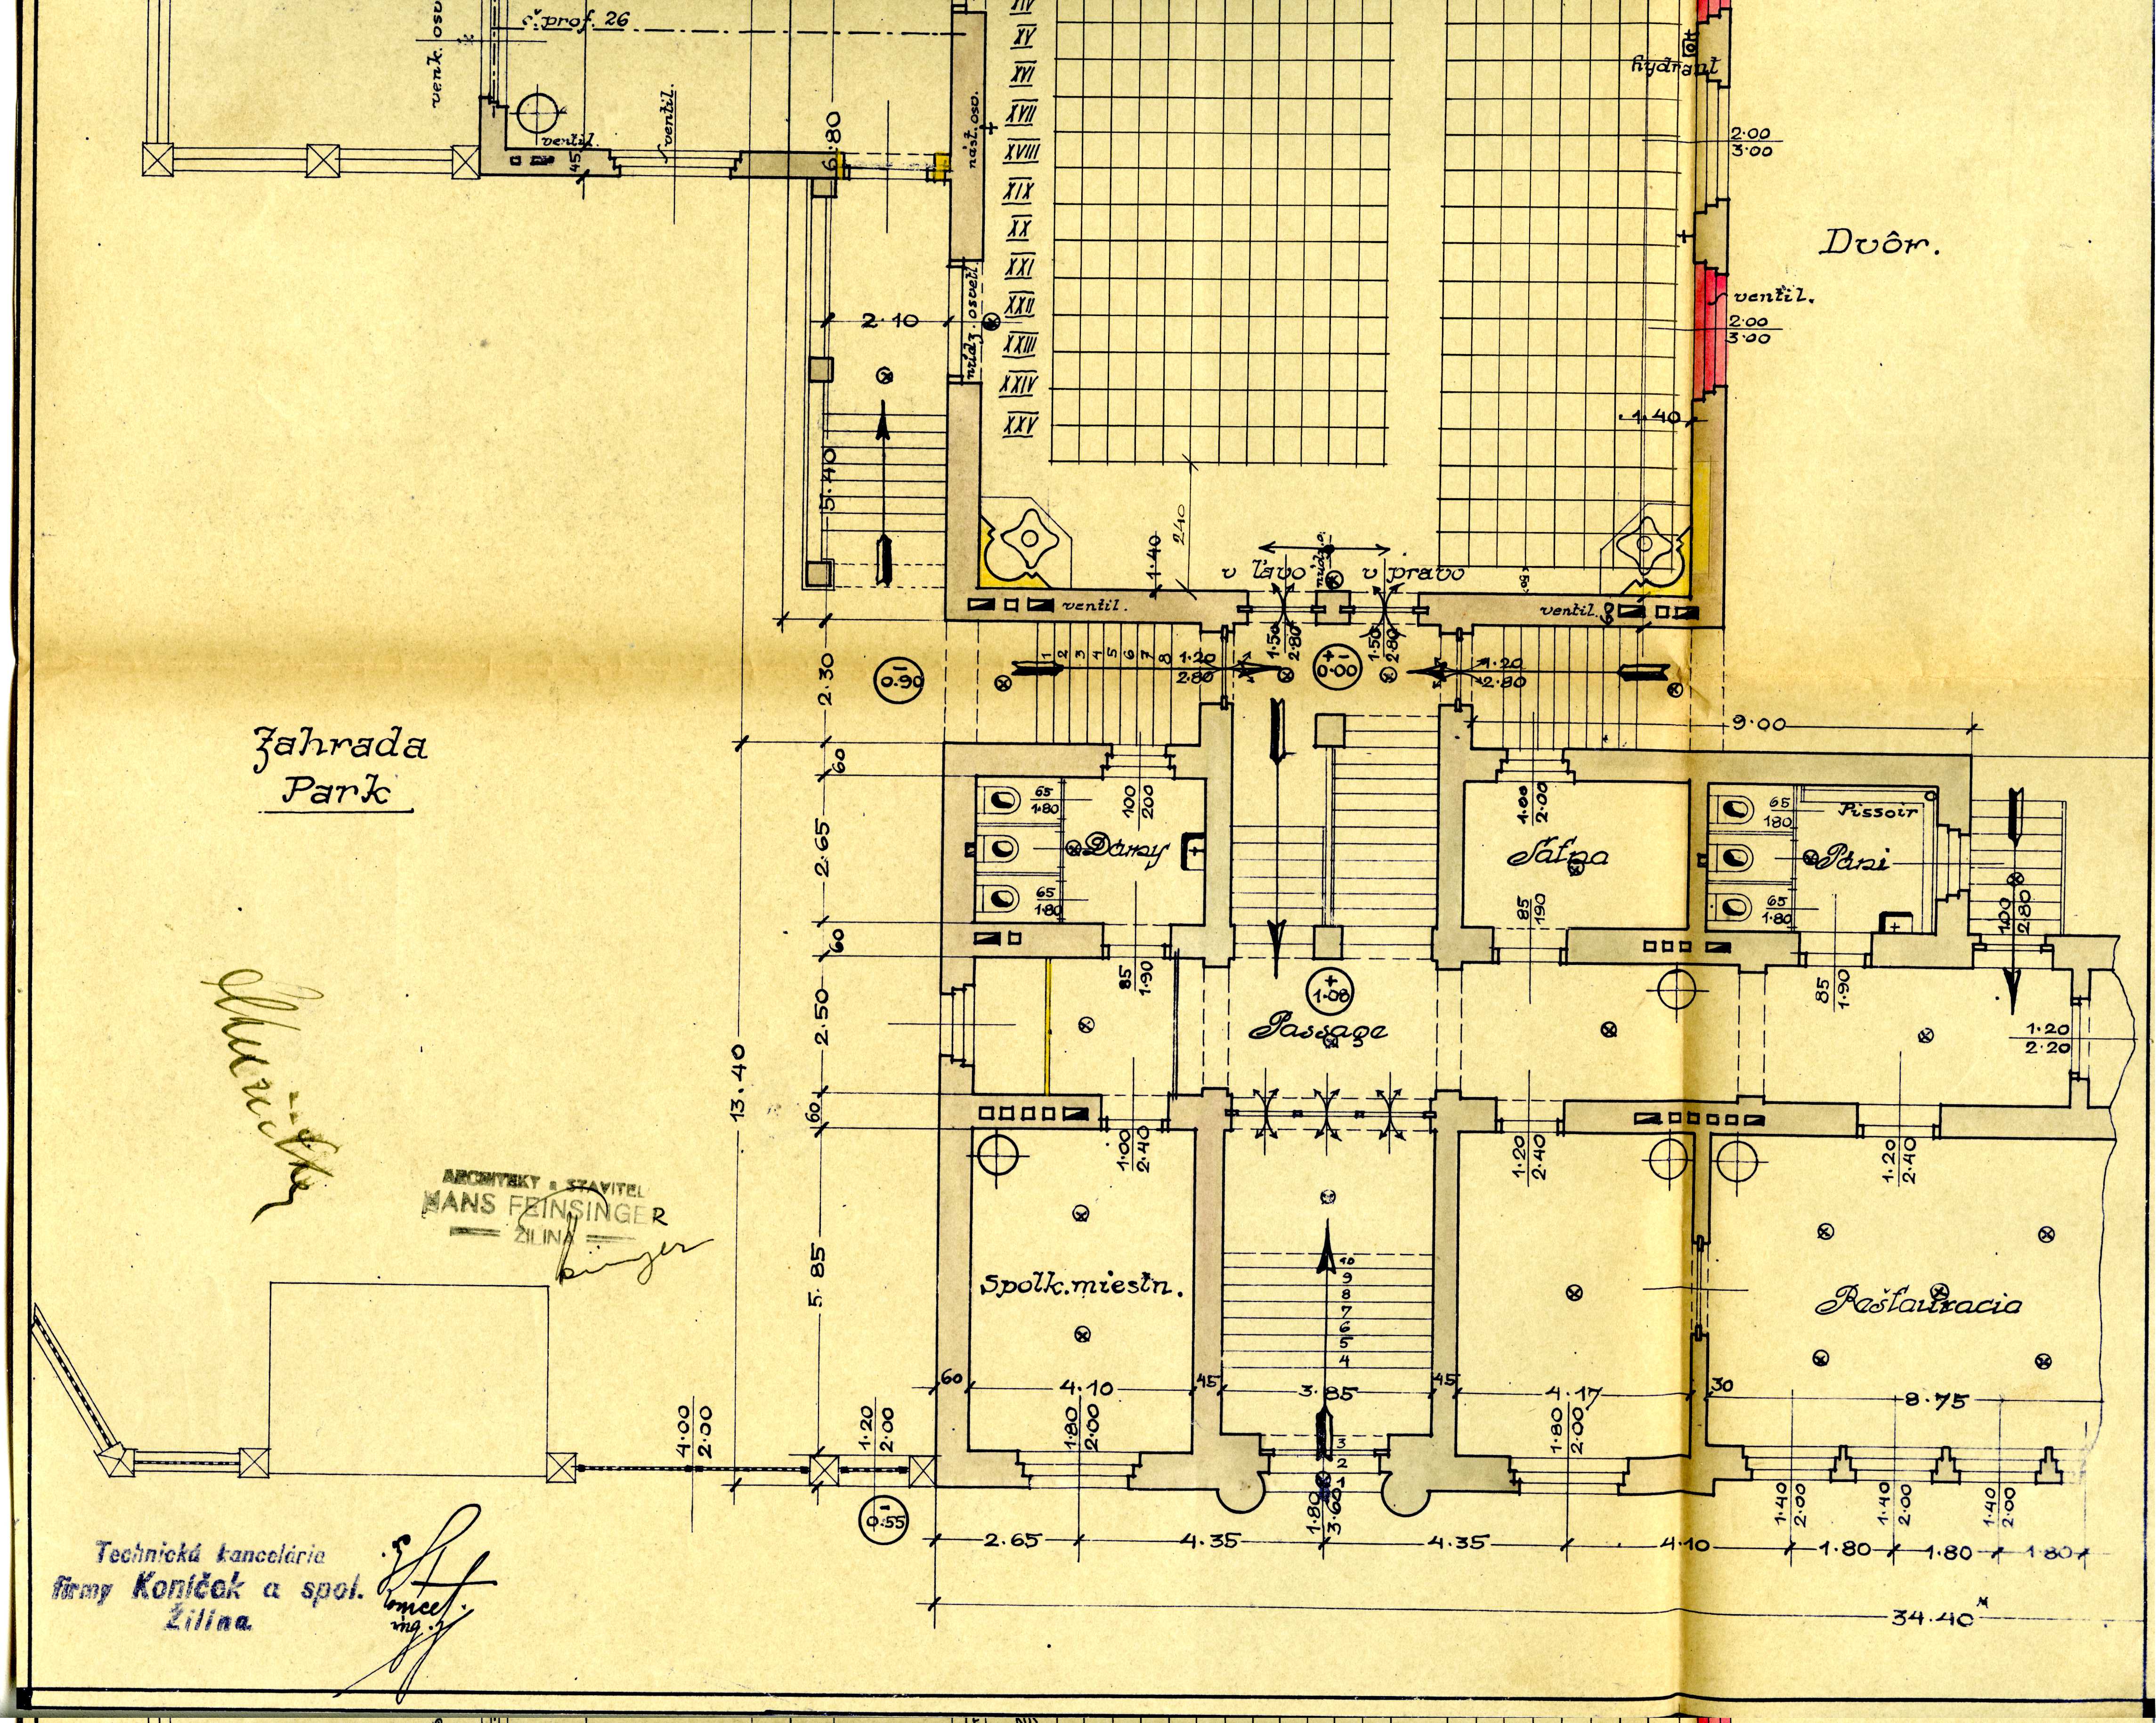 č. prof. 26
ventil.
ventil.
45
6.80
násť. osv.
XV
XVI
XVII
XVIII
XIX
XX
XXI
XXII
XXIII
XXIV
XXV
hydrant
2.00
3.00
Dvôr.
ventil.
2.00
3.00
1.40
2.10
núdz. osvetl.
5.40
1.40
240
v ľavo
v pravo
ventil.
ventil.
1.50
2.80
1.50
2.80
-
0.90
1 2 3 4 5 6 7 8
1.20
2.80
+-
0.00
1.20
2.80
2.30
9.00
Zahrada
Park
60
65
1.80
100
200
Dámy
65
1.80
2.65
1.00
2.00
Šatna
85
190
65
180
Pissoir
Páni
65
1.80
1.00
2.80
60
85
1.90
+
1.08
Passage
85
1.90
1.20
2.20
2.50
13.40
60
1.00
2.40
1.20
2.40
1.20
2.40
ARCHITEKT a STAVITEL
HANS FEINSINGER
ŽILINA
5.85
Spolk. miestn.
10
9
8
7
6
5
4
Reštauracia
60
4.10
45
3.85
45
4.17
30
8.75
4.00
2.00
1.20
2.00
1.80
2.00
3
2
1
1.80
3.60
1.80
2.00
1.40
2.00
1.40
2.00
1.40
2.00
-
0.55
2.65
4.35
4.35
4.10
1.80
1.80
1.80
34.40 M
Technická kancelária
firmy Koníček a spol.
Žilina.